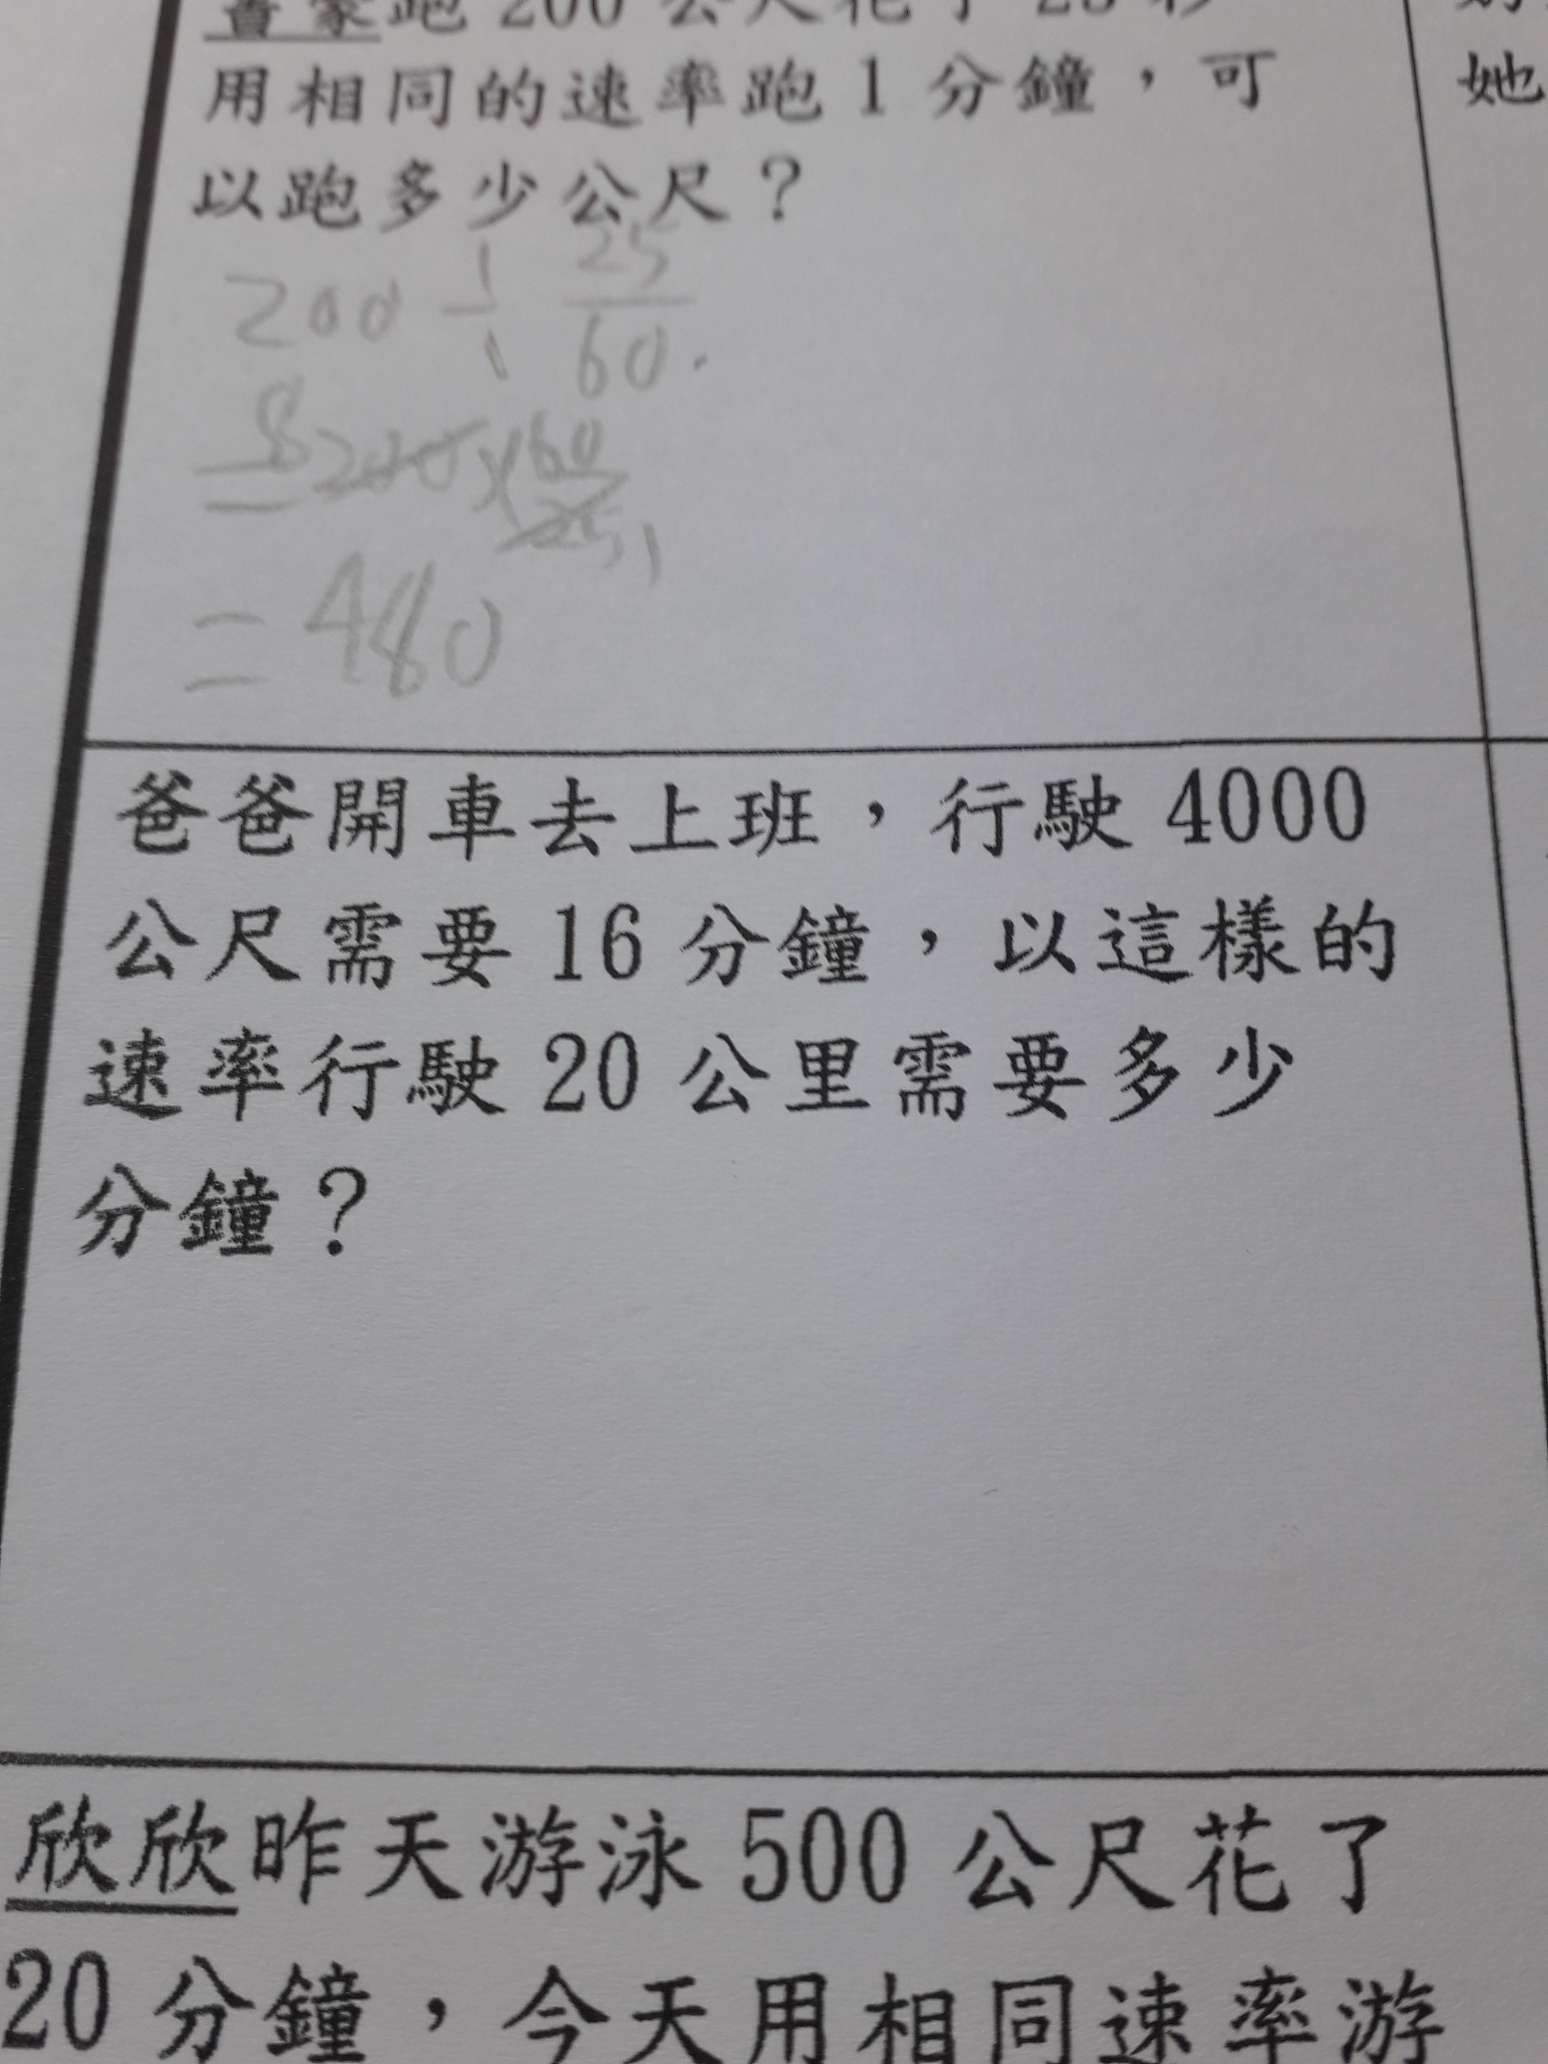 跑 200 公尺花了 25 秒
用相同的速率跑 1 分鐘，可
以跑多少公尺？
200 ÷ 25/60
= 8 200 × 60/25 1
= 480
她
爸爸開車去上班，行駛 4000
公尺需要 16 分鐘，以這樣的
速率行駛 20 公里需要多少
分鐘？
欣欣昨天游泳 500 公尺花了
20 分鐘，今天用相同速率游